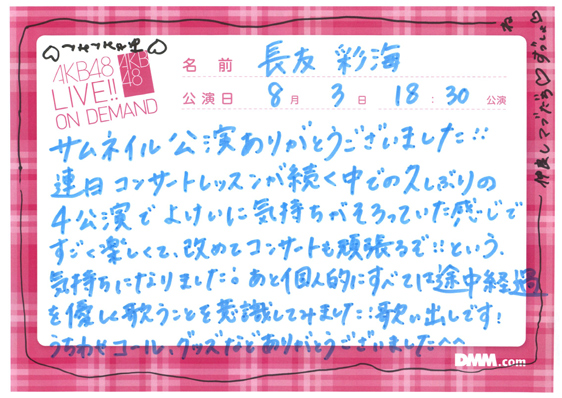 AKB48
LIVE!!
ON DEMAND
AKB
48
名前 長友 彩海
公演日 8月 3日 18:30 公演
サムネイル公演ありがとうございました!!
連日コンサートレッスンが続く中での久しぶりの
4公演でよけいに気持ちがそろっていた感じで
すごく楽しくて、改めてコンサートも頑張るぞ!!という、
気持ちになりました。あと個人的にすべては途中経過
を優しく歌うことを意識してみました!歌い出しです!
うちわやコール、グッズなどありがとうございました^^
DMM.com
仲良しマブだち♡ずっしょ♡